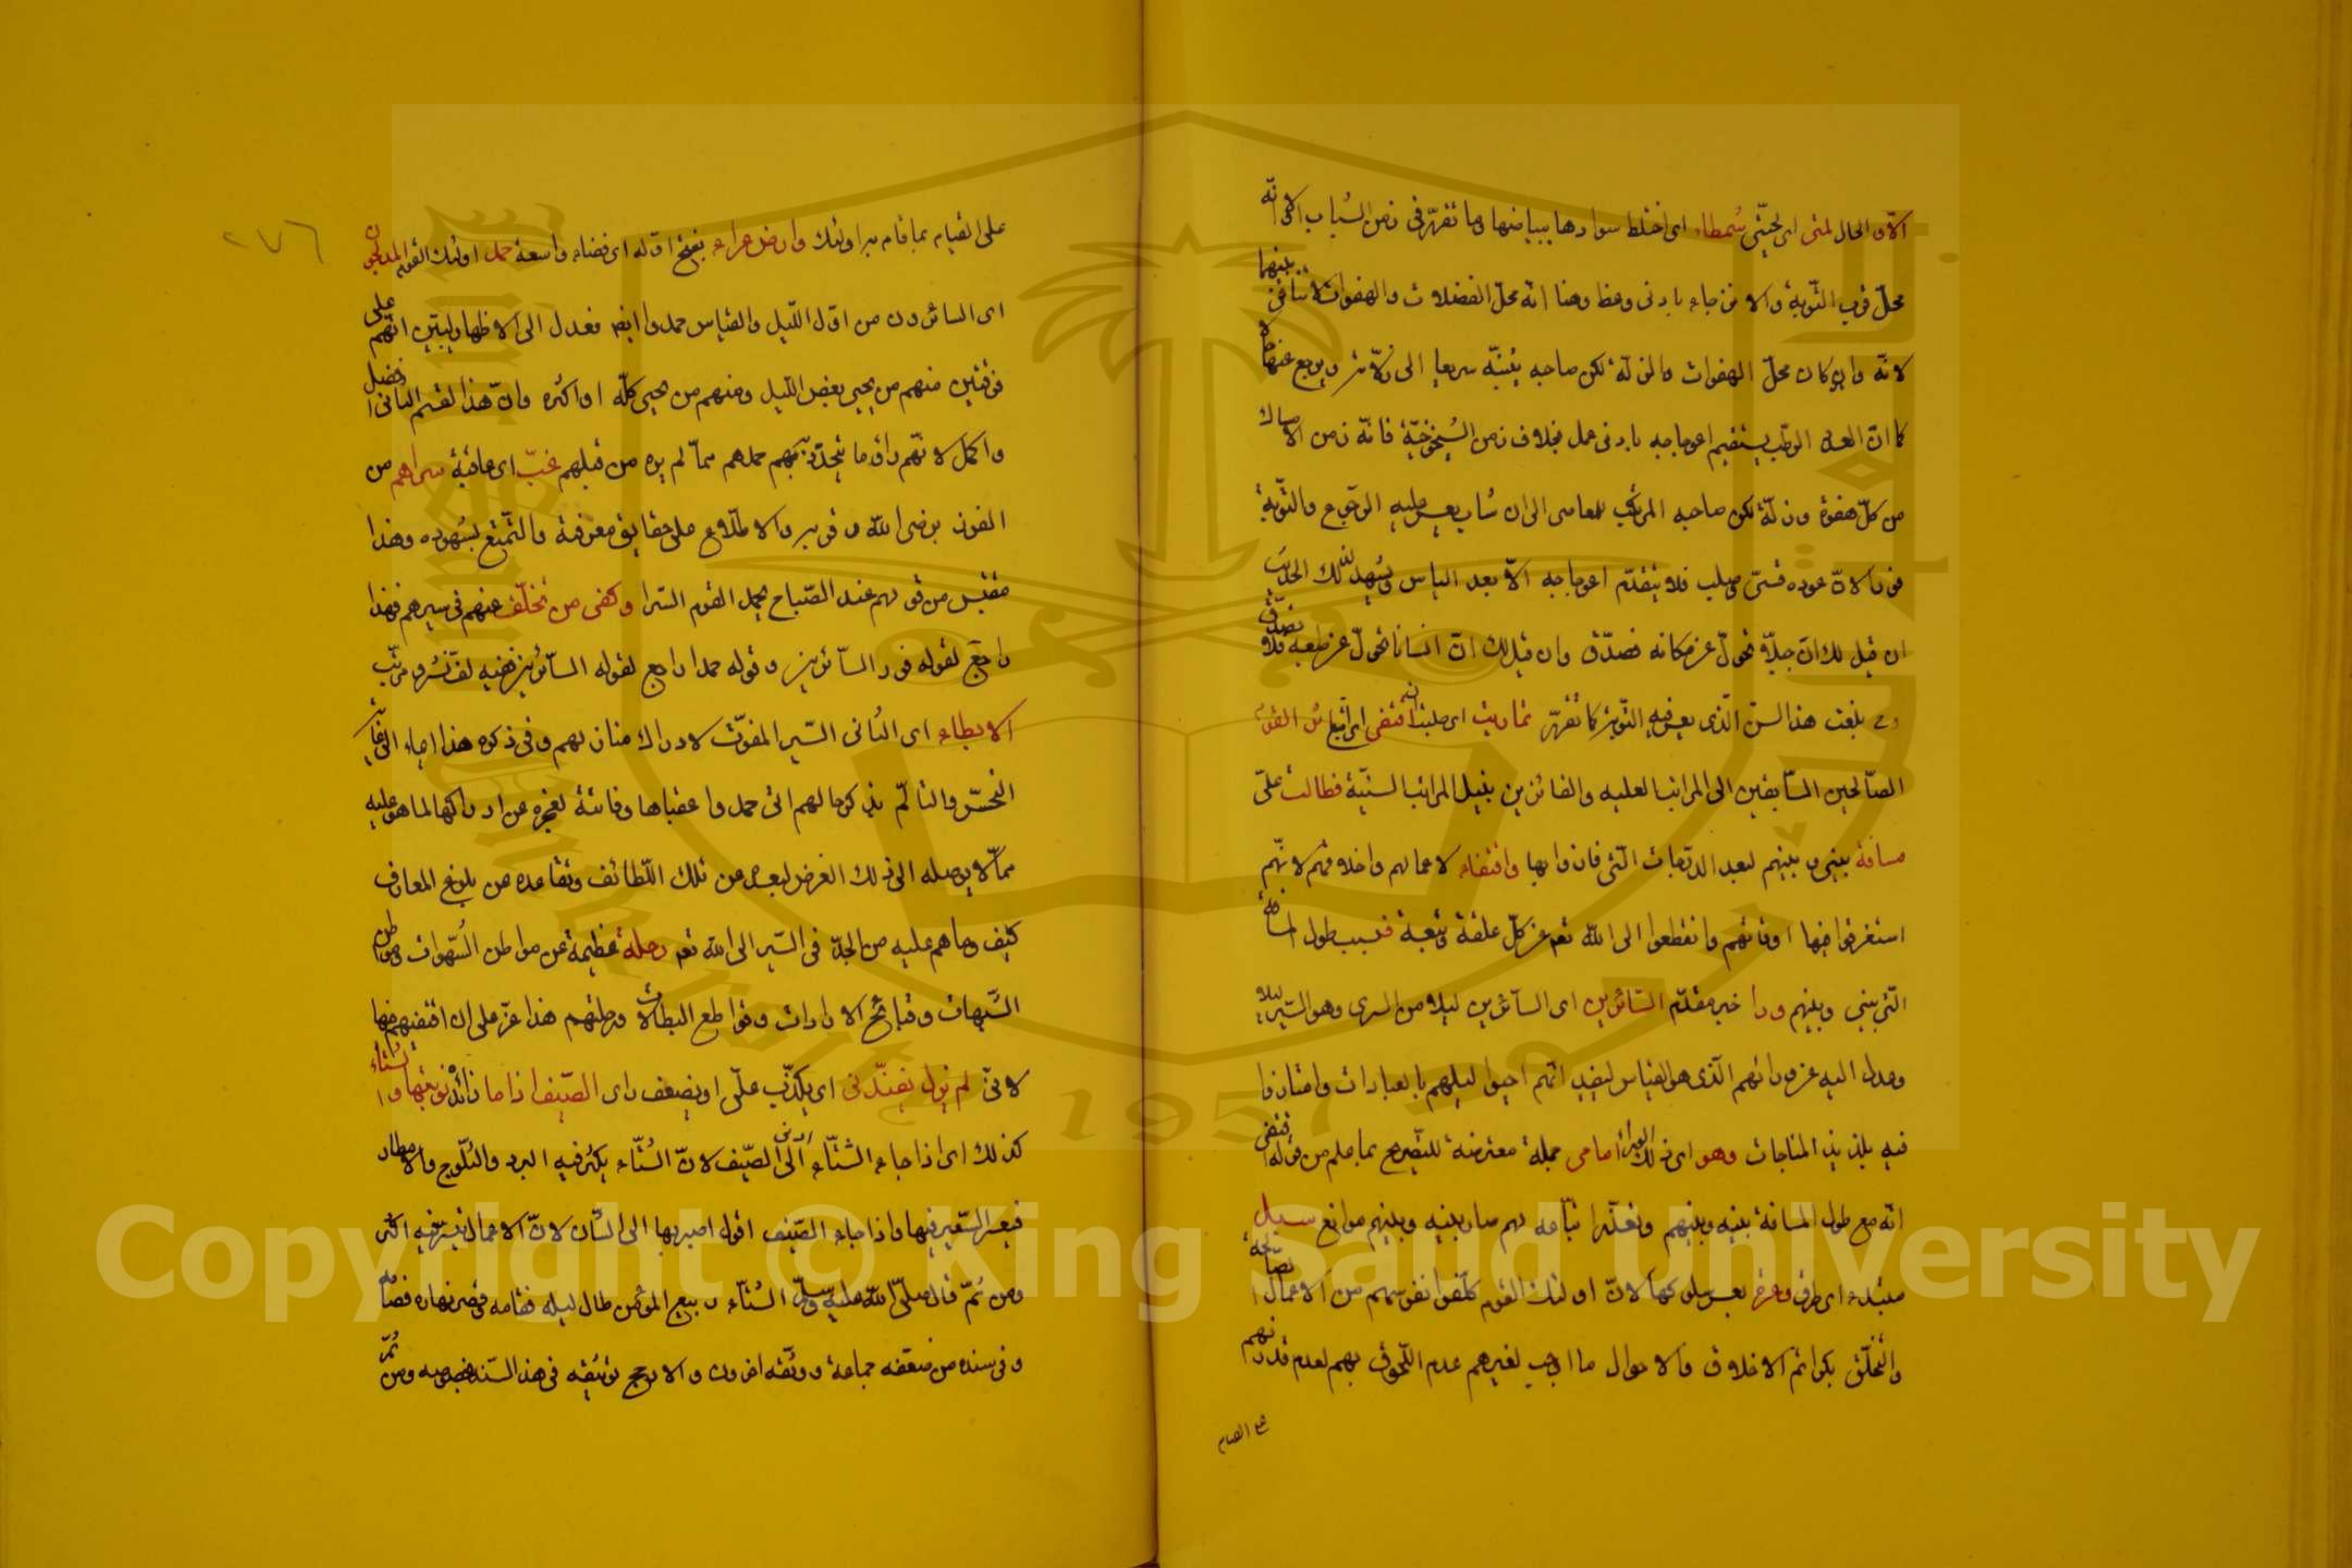 الآن والحال لمتى اى لحيتى شمطاء اى اختلط سوادها ببياضها وما تقرر فى زمن الشباب الا انه
محل قرب التوبة والانزجار بادنى وعظ وهنا انه محل الفضلات والهفوات لا تنافى بينهما
لانه وان كان محل الهفوات والزلة لكن صاحبه ينبه سريعا الى زلاته ويرجع عنها
كما ان العود الرطب يستقيم اعوجاجه بادنى عمل بخلاف زمن الشيخوخة فانه زمن الامساك
من كل هفوة وزلة لكن صاحبه المرتكب للمعاصى الى ان شاب يعسر عليه الرجوع والتوبة
فورا لان عوده قسى صلب فلا ينعدم اعوجاجه الا بعد الياس ويشهد لذلك الحديث
ان قيل لك ان جبلا تحول عن مكانه فصدق وان قيل لك ان انسانا تحول عن طبعه فلا تصدق
بلغت هذا السن الذى يعسر فيه التوبة كما تقرر تماديت اى طلبت ان اقتفى اى اتبع اثر القوم
الصالحين السابقين الى المراتب العلية والفائزين بنيل المراتب السنية فطالت على
مسافة بينى وبينهم لبعد الدرجات التى فازوا بها واقتفاء لاعمالهم واخلاقهم لانهم
استغرقوا فيها اوقاتهم وانقطعوا الى الله تعم عن كل علقة وتبعة فبسبب طول المسافة
التى بينى وبينهم ورا خبر مقدم السائرين اى السائرين ليلا من السرى وهو السير ليلا
وعدل اليه عن ورائهم الذى هو القياس ليفيد انهم احيوا ليلهم بالعبادات وامتازوا
فيه بلذيذ المناجات وهو اى ذلك الورا امامى جملة معترضة للتصريح بما علم من قوله اقتفى
انه مع طول المسافة بينه وبينهم وتعذر اتباعه لهم صار بينه وبينهم موانع سبل
مبتدء اى طرق وعرة يعسر سلوكها لان اولئك القوم كلفوا نفوسهم من الاعمال الصالحة
والتخلق بكرائم الاخلاق والاحوال ما اوجب لغيرهم عدم اللحوق بهم لعدم قدرتهم
على القيام
٢٧٦
على القيام بما قام به اولئك وارض عراء بفتح اوله اى فضاء واسعة حمد اولئك القوم المدلجون
اى السائرون من اول الليل والقياس حمدوا ايضا فعدل الى الاظهار ليبين انهم على
فرقتين منهم من يحيى بعض الليل ومنهم من يحيى كله او اكثره وان هذا القسم الثانى افضل
واكمل لانهم راوا ما يتجدد بهم حمدهم مما لم يره من قبلهم غب اى عاقبة سراهم من
الفوز برضى الله وقربه والاطلاع على حقايق معرفته والتمتع بشهوده وهذا
مقتبس من قولهم عند الصباح يحمد القوم السرا وكفى من تخلف عنهم فى سيرهم فهذا
راجع لقوله فورا السائرين وقوله حمد راجع لقوله السائرين ففيه لف ونشر مرتب
الابطاء اى التانى السير المفوت لادراك منازلهم وفى ذكره هذا ايماء الى غاية
التحسر والتالم بذكر حالهم التى حمدوا عقباها وفاتته لعجزه عن ادراكها لما هو عليه
مما لا يوصله الى ذلك الغرض لبعده عن تلك اللطائف وتقاعده عن بلوغ المعارف
كيف وما هم عليه من الجد فى السير الى الله تعم رحلة عظيمة عن مواطن الشهوات ومواطن
الشبهات وقبائح الارادات وقواطع البطالات ورحلتهم هذا عز على ان اقتفيهم فيها
لانى لم يزل يفندنى اى يكذب على او يضعف راى الصيف اذا ما زائدة نويتها والشتاء
كذلك اى اذا جاء الشتاء ارنى الى الصيف لان الشتاء يكثر فيه البرد والثلوج والامطار
فيعسر السفر فيها واذا جاء الصيف اقول اصبر بها الى الشتاء لان الاعمال تيسر فيه اكثر
ومن ثم قال صلى الله عليه وسلم الشتاء ربيع المؤمن طال ليله فقامه وقصر نهاره فصامه
وفى سنده من ضعفه جماعة ووثقه اخرون والارجح توثيقه فى هذا السند بخصوصه ومن ثم